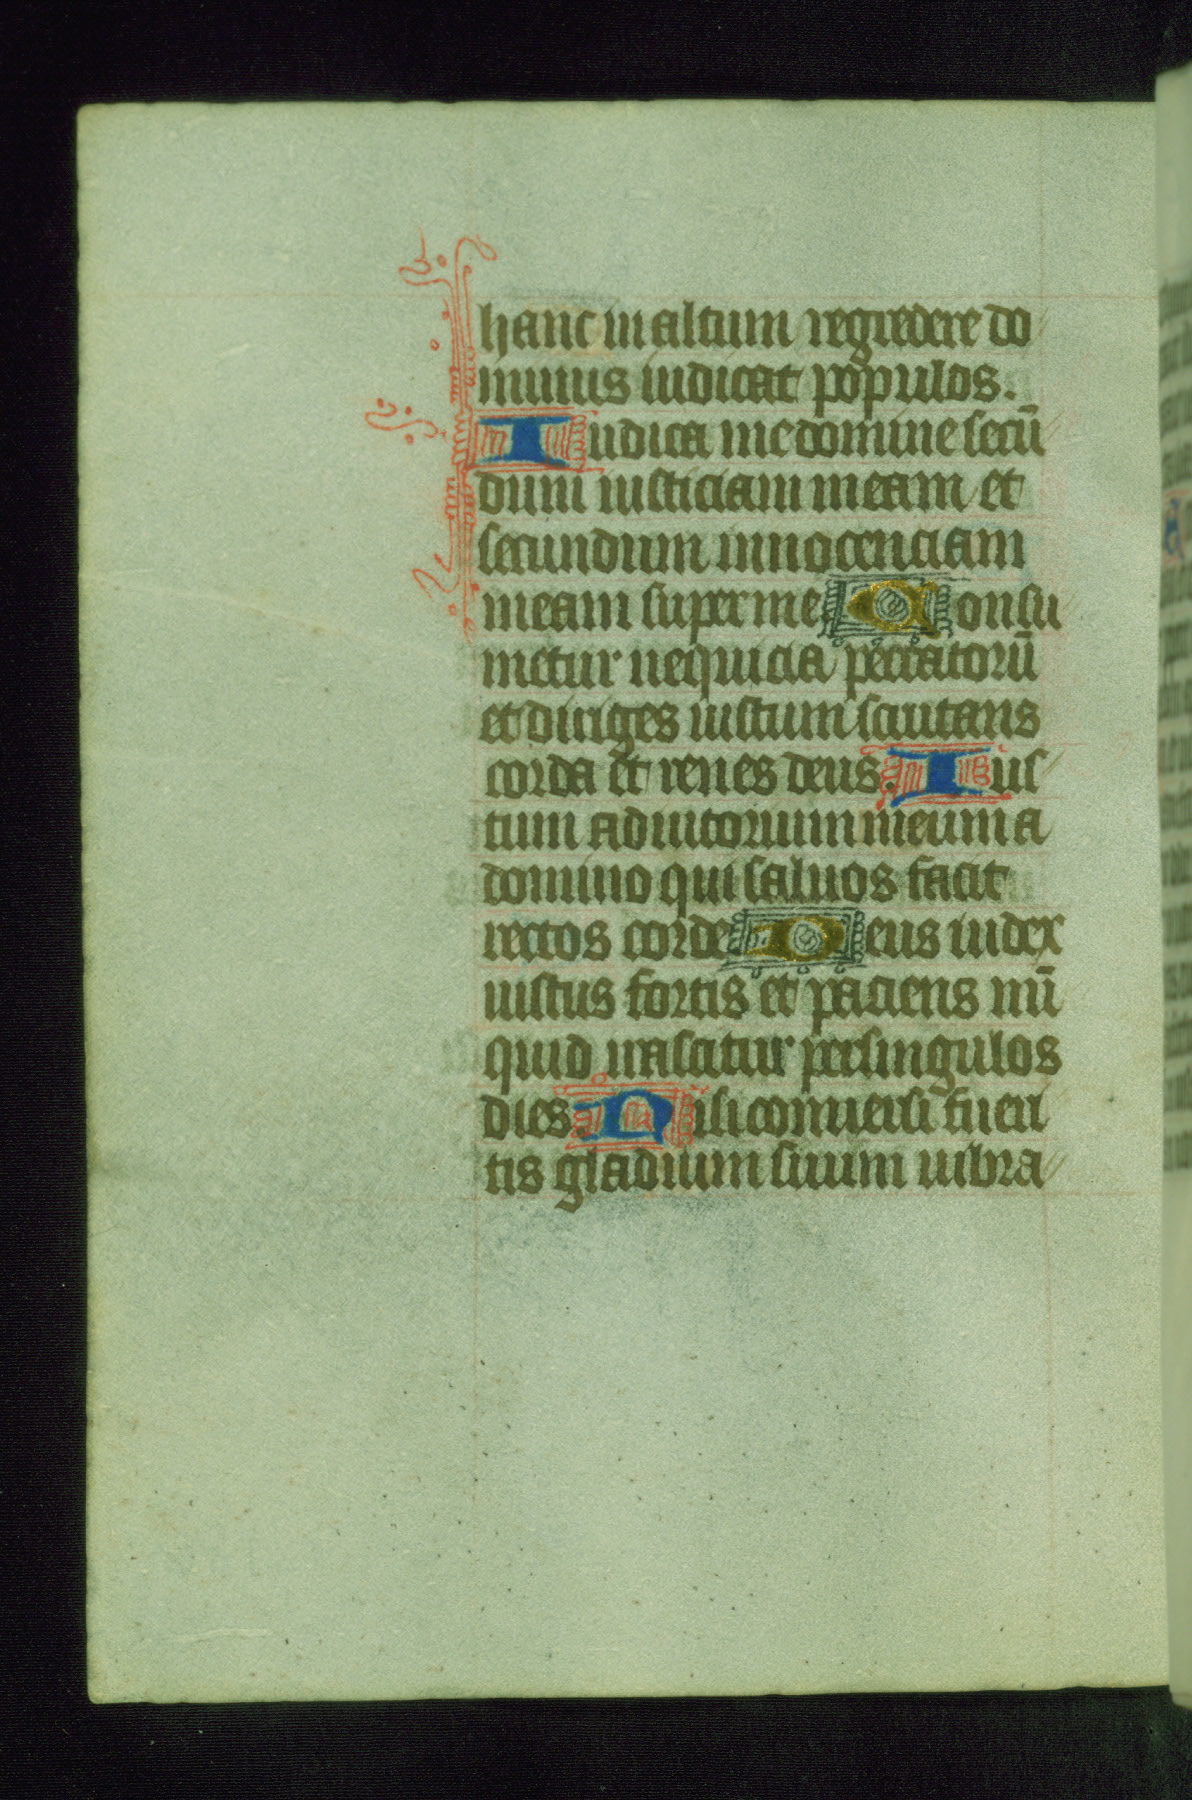 hanc in altum regredere do
minus iudicat populos.
Iudica me domine secū
dum iusticiam meam et
secundum innocenciam
meam super me Consu
metur nequicia peccatorū
et diriges iustum scrutans
corda et renes deus. Ius
tum adiutorium meum a
domino qui saluos facit
rectos corde Deus iudex
iustus fortis et paciens nū
quid irascitur per singulos
dies. Nisi conuersi fueri
tis gladium suum uibra